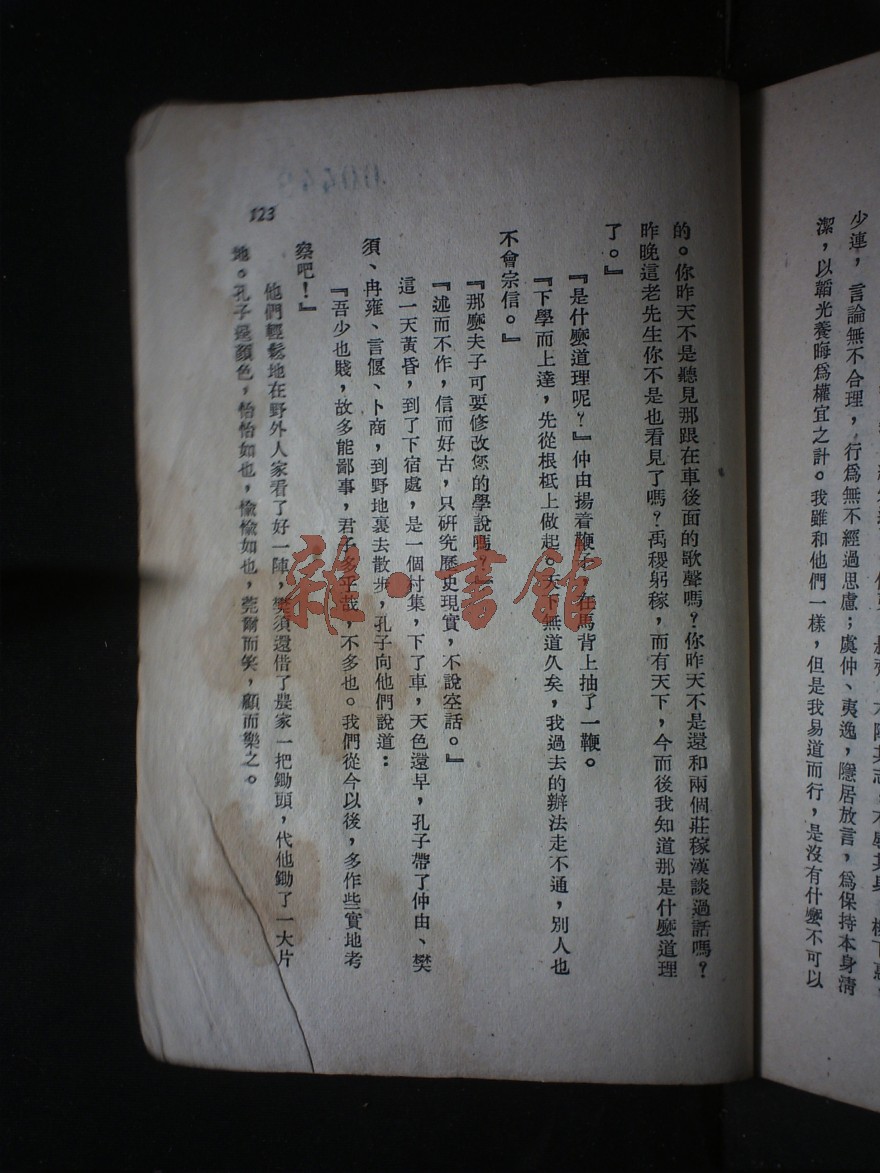 少連，言論無不合理，行爲無不經過思慮；虞仲、夷逸，隱居放言，爲保持本身清
潔，以韜光養晦爲權宜之計。我雖和他們一樣，但是我易道而行，是沒有什麼不可以
的。你昨天不是聽見那跟在車後面的歌聲嗎？你昨天不是還和兩個莊稼漢談過話嗎？
昨晚這老先生你不是也看見了嗎？禹稷躬稼，而有天下，今而後我知道那是什麼道理
了。』
『是什麼道理呢？』仲由揚着鞭子，在馬背上抽了一鞭。
『下學而上達，先從根柢上做起。天下無道久矣，我過去的辦法走不通，別人也
不會宗信。』
『那麼夫子可要修改您的學說嗎？』
『述而不作，信而好古，只研究歷史現實，不說空話。』
這一天黃昏，到了下宿處，是一個村集，下了車，天色還早，孔子帶了仲由、樊
須、冉雍、言偃、卜商，到野地裏去散步，孔子向他們說道：
『吾少也賤，故多能鄙事，君子多乎哉，不多也。我們從今以後，多作些實地考
察吧！』
他們輕鬆地在野外人家看了好一陣，樊須還借了農家一把鋤頭，代他鋤了一大片
地。孔子逞顏色，怡怡如也，愉愉如也，莞爾而笑，顧而樂之。
123
雜·書館